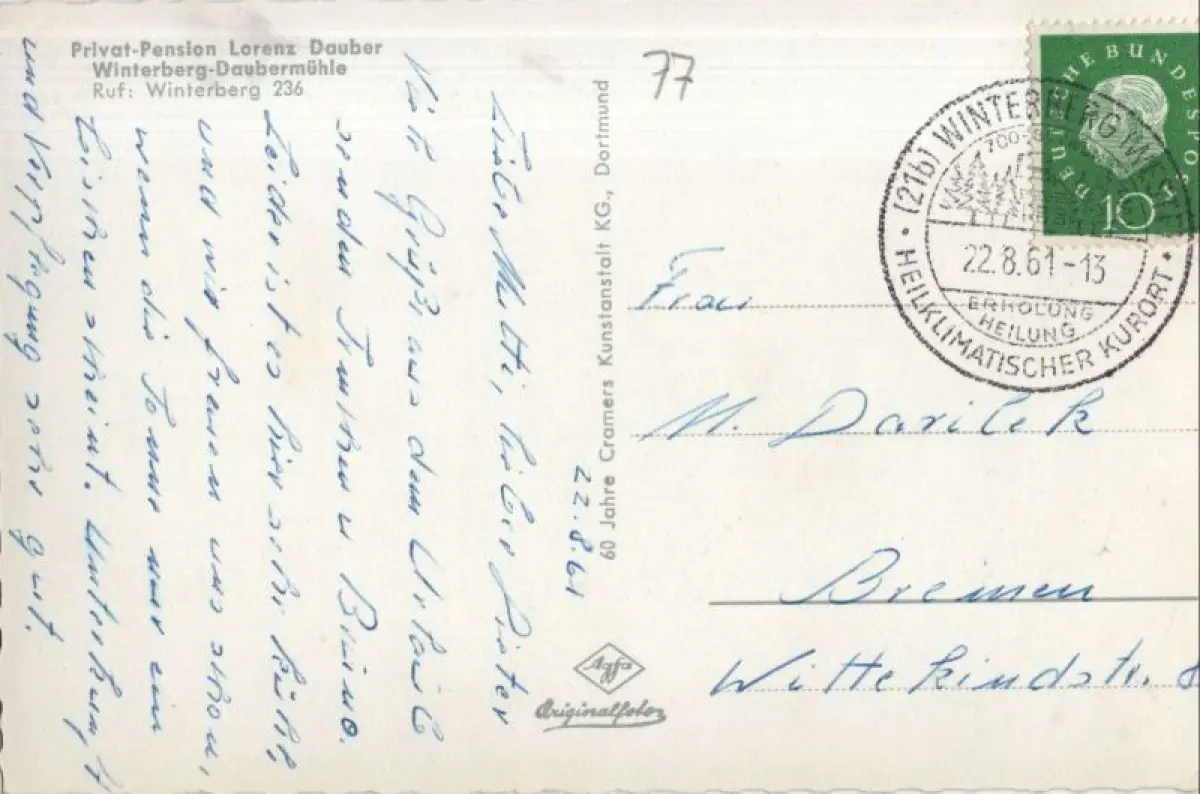 Privat-Pension Lorenz Dauber
Winterberg-Daubermühle
Ruf: Winterberg 236
77
22.8.61
Liebe Mutti, lieber Dieter
Grüße aus dem Urlaub
senden
Leider ist es hier sehr kühl,
und wir freuen uns schon,
wenn die Sonne nur ein
bisschen scheint. Unterkunft
und Verpflegung sehr gut.
60 Jahre Cramers Kunstanstalt KG., Dortmund
Agfa
Originalfoto
DEUTSCHE BUNDESPOST
10
(21b) WINTERBERG (WESTF)
22.8.61-13
ERHOLUNG
HEILUNG
HEILKLIMATISCHER KURORT
Frau
M. Darilek
Bremen
Wittekindstr. 8